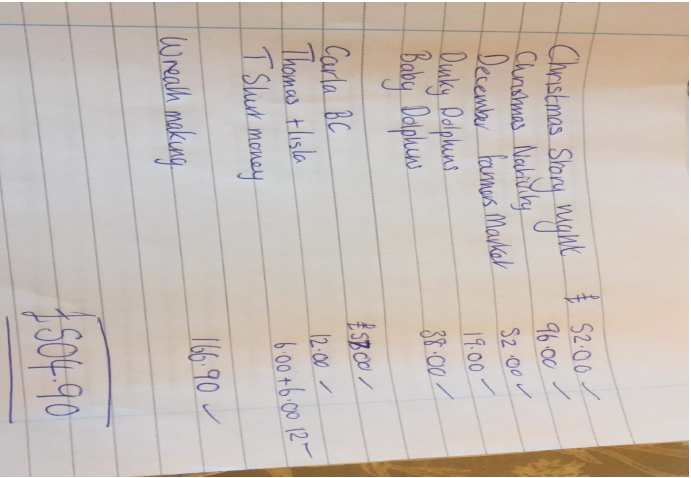 Christmas Story night £ 52.00 ✓
Christmas Nativity 96.00 ✓
December farmers Market 52.00 ✓
Dinky Dolphins 19.00 ✓
Baby Dolphins 38.00 ✓
Carla BC £57.00 ✓
Thomas + Isla 12.00 ✓
T Shirt money 6.00+6.00 12 ✓
Wreath making 166.90 ✓
£504.90